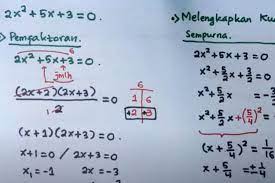 2x² + 5x + 3 = 0.
Pemfaktoran.
6
2x² + 5x + 3 = 0
jmlh
(2x+2)(2x+3) = 0
2
6
1 6
+2 +3
(x+1)(2x+3) = 0.
x+1=0 / 2x+3=0
x₁ = -1 2x = -3
•) Melengkapkan Ku
Sempurna.
2x² + 5x + 3 =
x² + 5/2 x + 3/2 =
x² + 5/2 x = -3/2
x² + 5/2 x + (5/4)² =
(x + 5/4)² = 1/16
x + 5/4 = ± 1/4